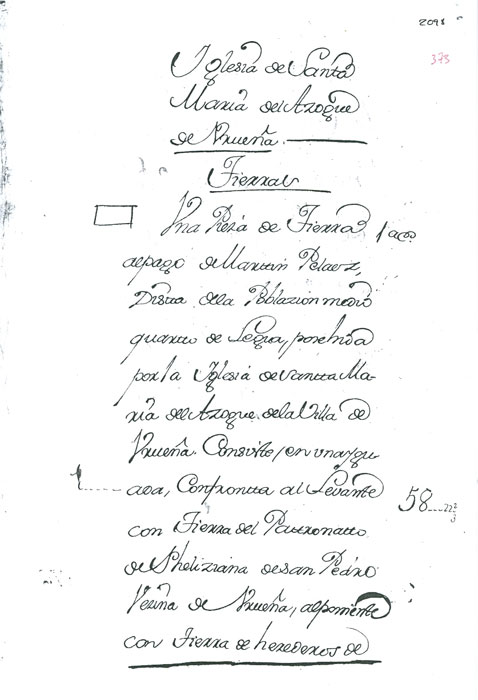 2098
373
Iglesia de Santa
Maria del Azogue
de Vrueña.
Tierras
Vna Pieza de Tierra
al pago de Martin Pelaez,
Dista de la Poblazion medio
quarto de Legua, posehida
por la Yglesia de Santta Ma-
ria del Azogue de la Villa de
Vrueña. Consiste en una ygu
ada, Confrontta al Levante
58
con Tierra del Pattronatto
de Pheliziana de San Pedro
Vezina de Vrueña, al poniente
con Tierra de herederos de